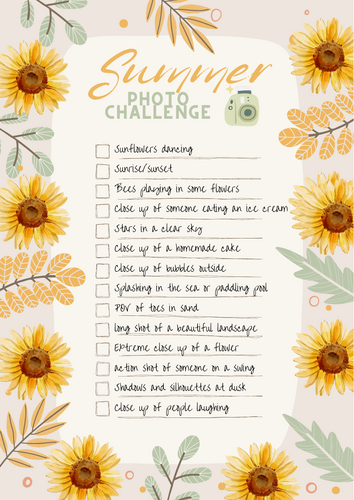 Summer
PHOTO
CHALLENGE
Sunflowers dancing
Sunrise/sunset
Bees playing in some flowers
Close up of someone eating an ice cream
Stars in a clear sky
Close up of a homemade cake
Close up of bubbles outside
Splashing in the sea or paddling pool
POV of toes in sand
long shot of a beautiful landscape
Extreme close up of a flower
action shot of someone on a swing
Shadows and silhouettes at dusk
close up of people laughing